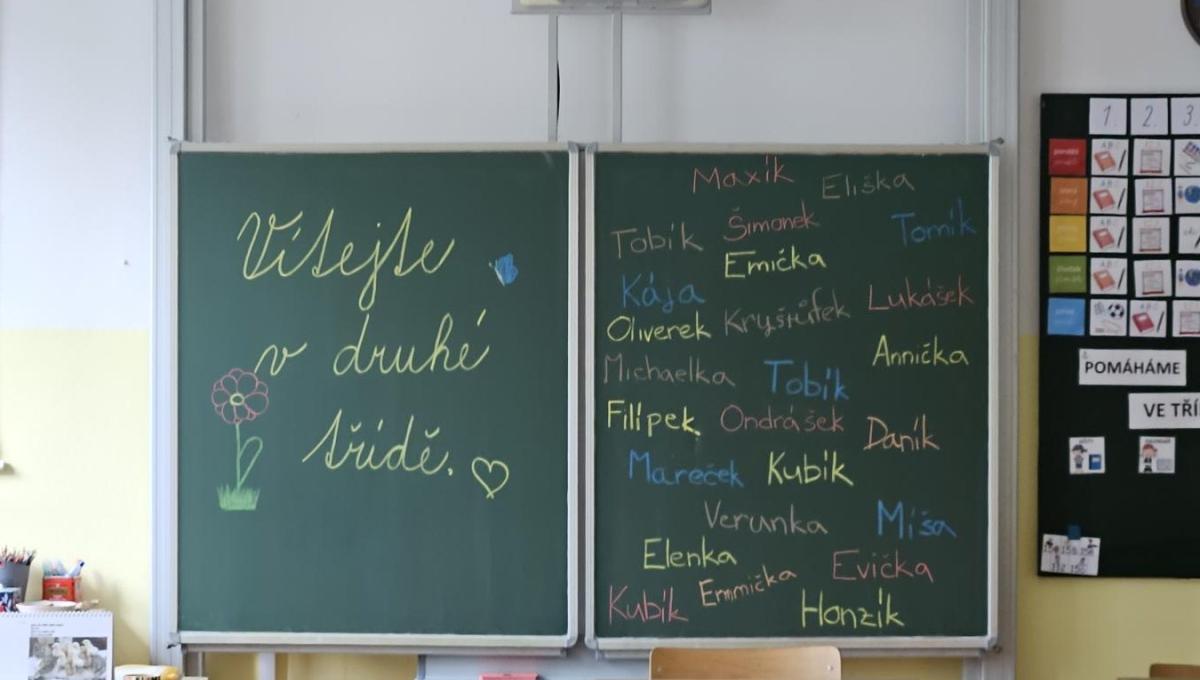 Vítejte
v druhé
třídě.
Maxík Eliška
Tobík Šimonek Tomík
Emička
Kája Lukášek
Oliverek Kryštůfek
Annička
Michaelka Tobík
Filípek Ondrášek Daník
Mareček Kubík
Verunka Míša
Elenka Evička
Kubík Emmička Honzík
1. 2. 3.
POMÁHÁME
VE TŘÍ